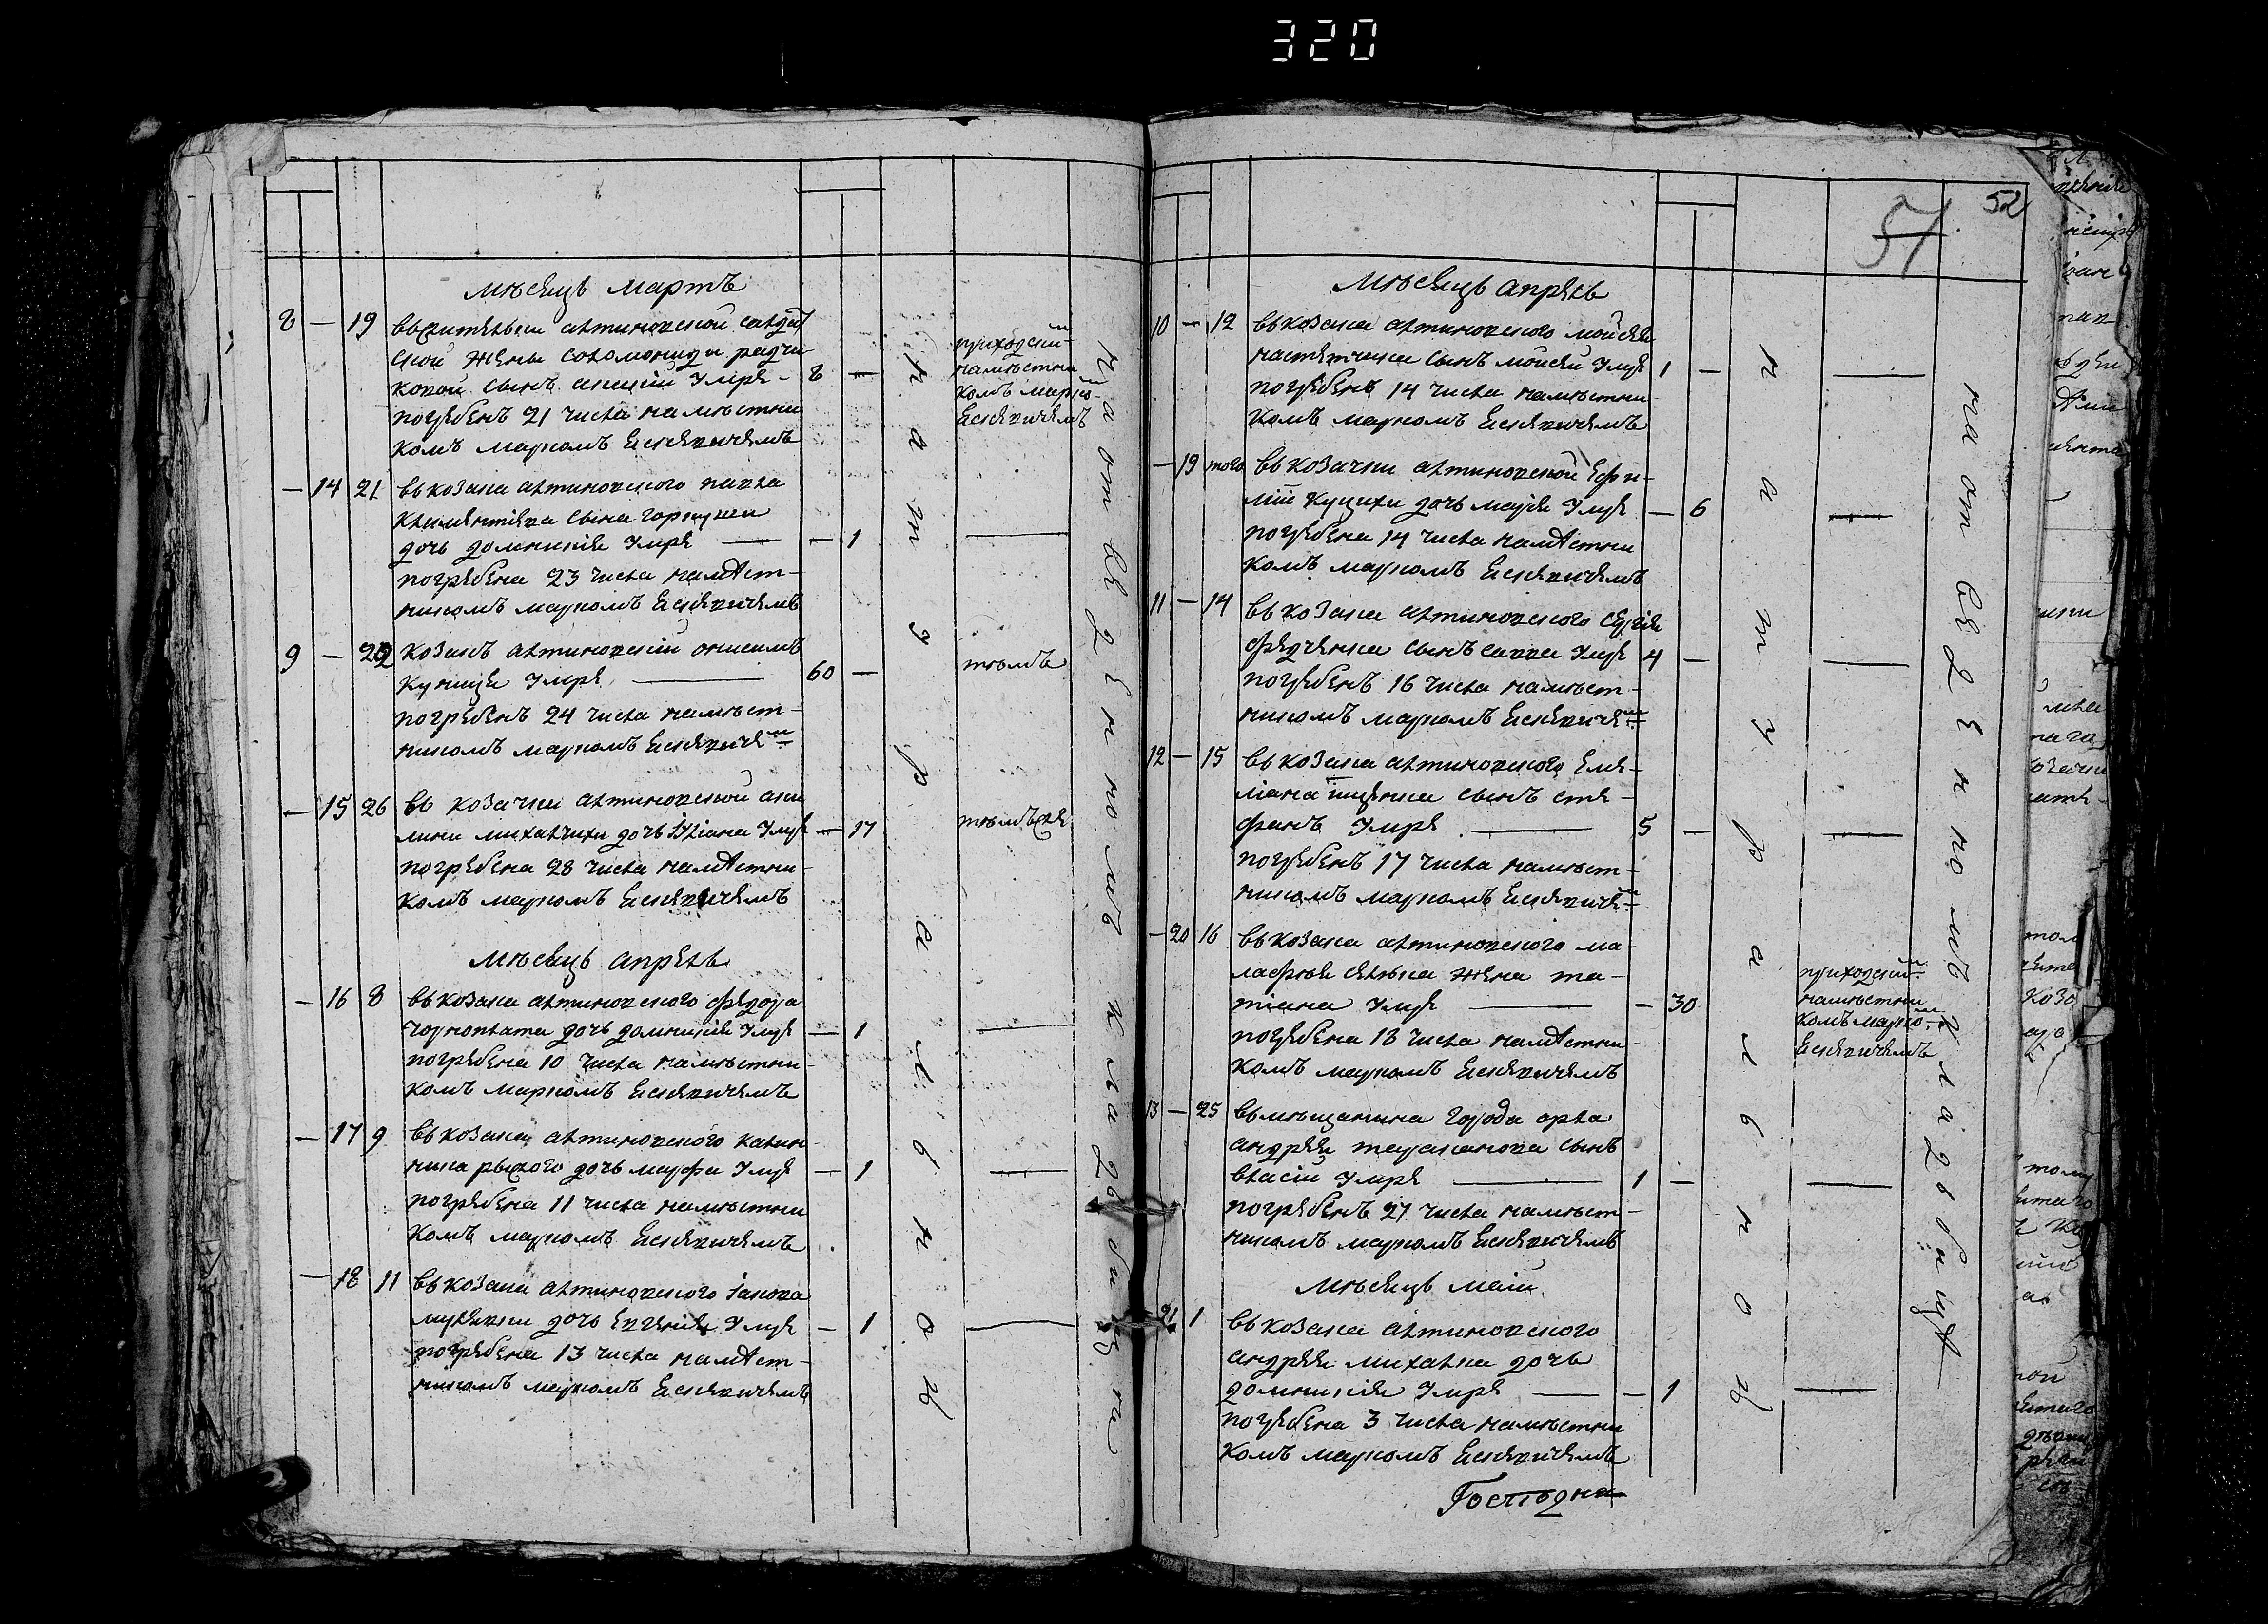 320
мѣсяцъ мартъ
8 — 19 въ жителки алтиновской салдат
ской жены соломониди радчи
ковой сынъ алексій умре — 8 —
погребенъ 21 числа намѣстни
комъ маркомъ Есиевичемъ
приходскій
намѣстни
комъ марко
Есиевичемъ
— 14 21 въ козака алтиновского павла
климентіева сына горкуши
дочь домникія умре — — 1
погребена 23 числа намѣст-
никомъ маркомъ Есиевичемъ
9 — 22 козакъ алтиновскій онисимъ
куница умре — 60 —
погребенъ 24 числа намѣст-
никомъ маркомъ Есиевиче м
тѣмъ
— 15 26 въ козачки алтиновской аки
лини михалчихи дочь уліана умре — 17
погребена 28 числа намѣстни-
комъ маркомъ Есиевичемъ
тѣмъ же
мѣсяцъ апрель
— 16 8 въ козака алтиновского федора
чорноплата дочь домникія умре — 1
погребена 10 числа намѣстни-
комъ маркомъ Есиевичемъ
— 17 9 въ козака алтиновского калин-
ника рыжого дочь марфа умре — 1
погребена 11 числа намѣстни
комъ маркомъ Есиевичемъ
— 18 11 въ козака алтиновского іакова
дочь Евгенія умре — 1
погребена 13 числа намѣст-
никомъ маркомъ Есиевичемъ
натурально
на отведенномъ кладбищѣ
57 52
мѣсяцъ апрель
10 — 12 въ козака алтиновского мойсея
сынъ мойсей умре 1 —
погребенъ 14 числа намѣстни
комъ маркомъ Есиевичемъ
— 19 того въ козачки алтиновской Ефи-
міи куцихи дочь марія умре — 6
погребена 14 числа намѣстни
комъ маркомъ Есиевичемъ
11 — 14 въ козака алтиновского сергія
федченка сынъ савва умре 4 —
погребенъ 16 числа намѣст-
никомъ маркомъ Есиевиче м
12 — 15 въ козака алтиновского Еме-
ліана ищенка сынъ сте-
фанъ умре — 5 —
погребенъ 17 числа намѣст-
никомъ маркомъ Есиевиче м
— 20 16 въ козака алтиновского ма-
лафѣя жена та-
тіана умре — — 30
погребена 18 числа намѣстни
комъ маркомъ Есиевичемъ
приходскій
намѣстни
комъ марко
Есиевичемъ
13 — 25 въ мѣщанина города орла
андрея тараканова сынъ
власій умре — 1 —
погребенъ 27 числа намѣст-
никомъ маркомъ Есиевичемъ
мѣсяцъ маій
21 1 въ козака алтиновского
андрея михалка дочь
домникія умре — — 1
погребена 3 числа намѣстни
комъ маркомъ Есиевичемъ
натурально
на отведенномъ кладбищѣ
Господня